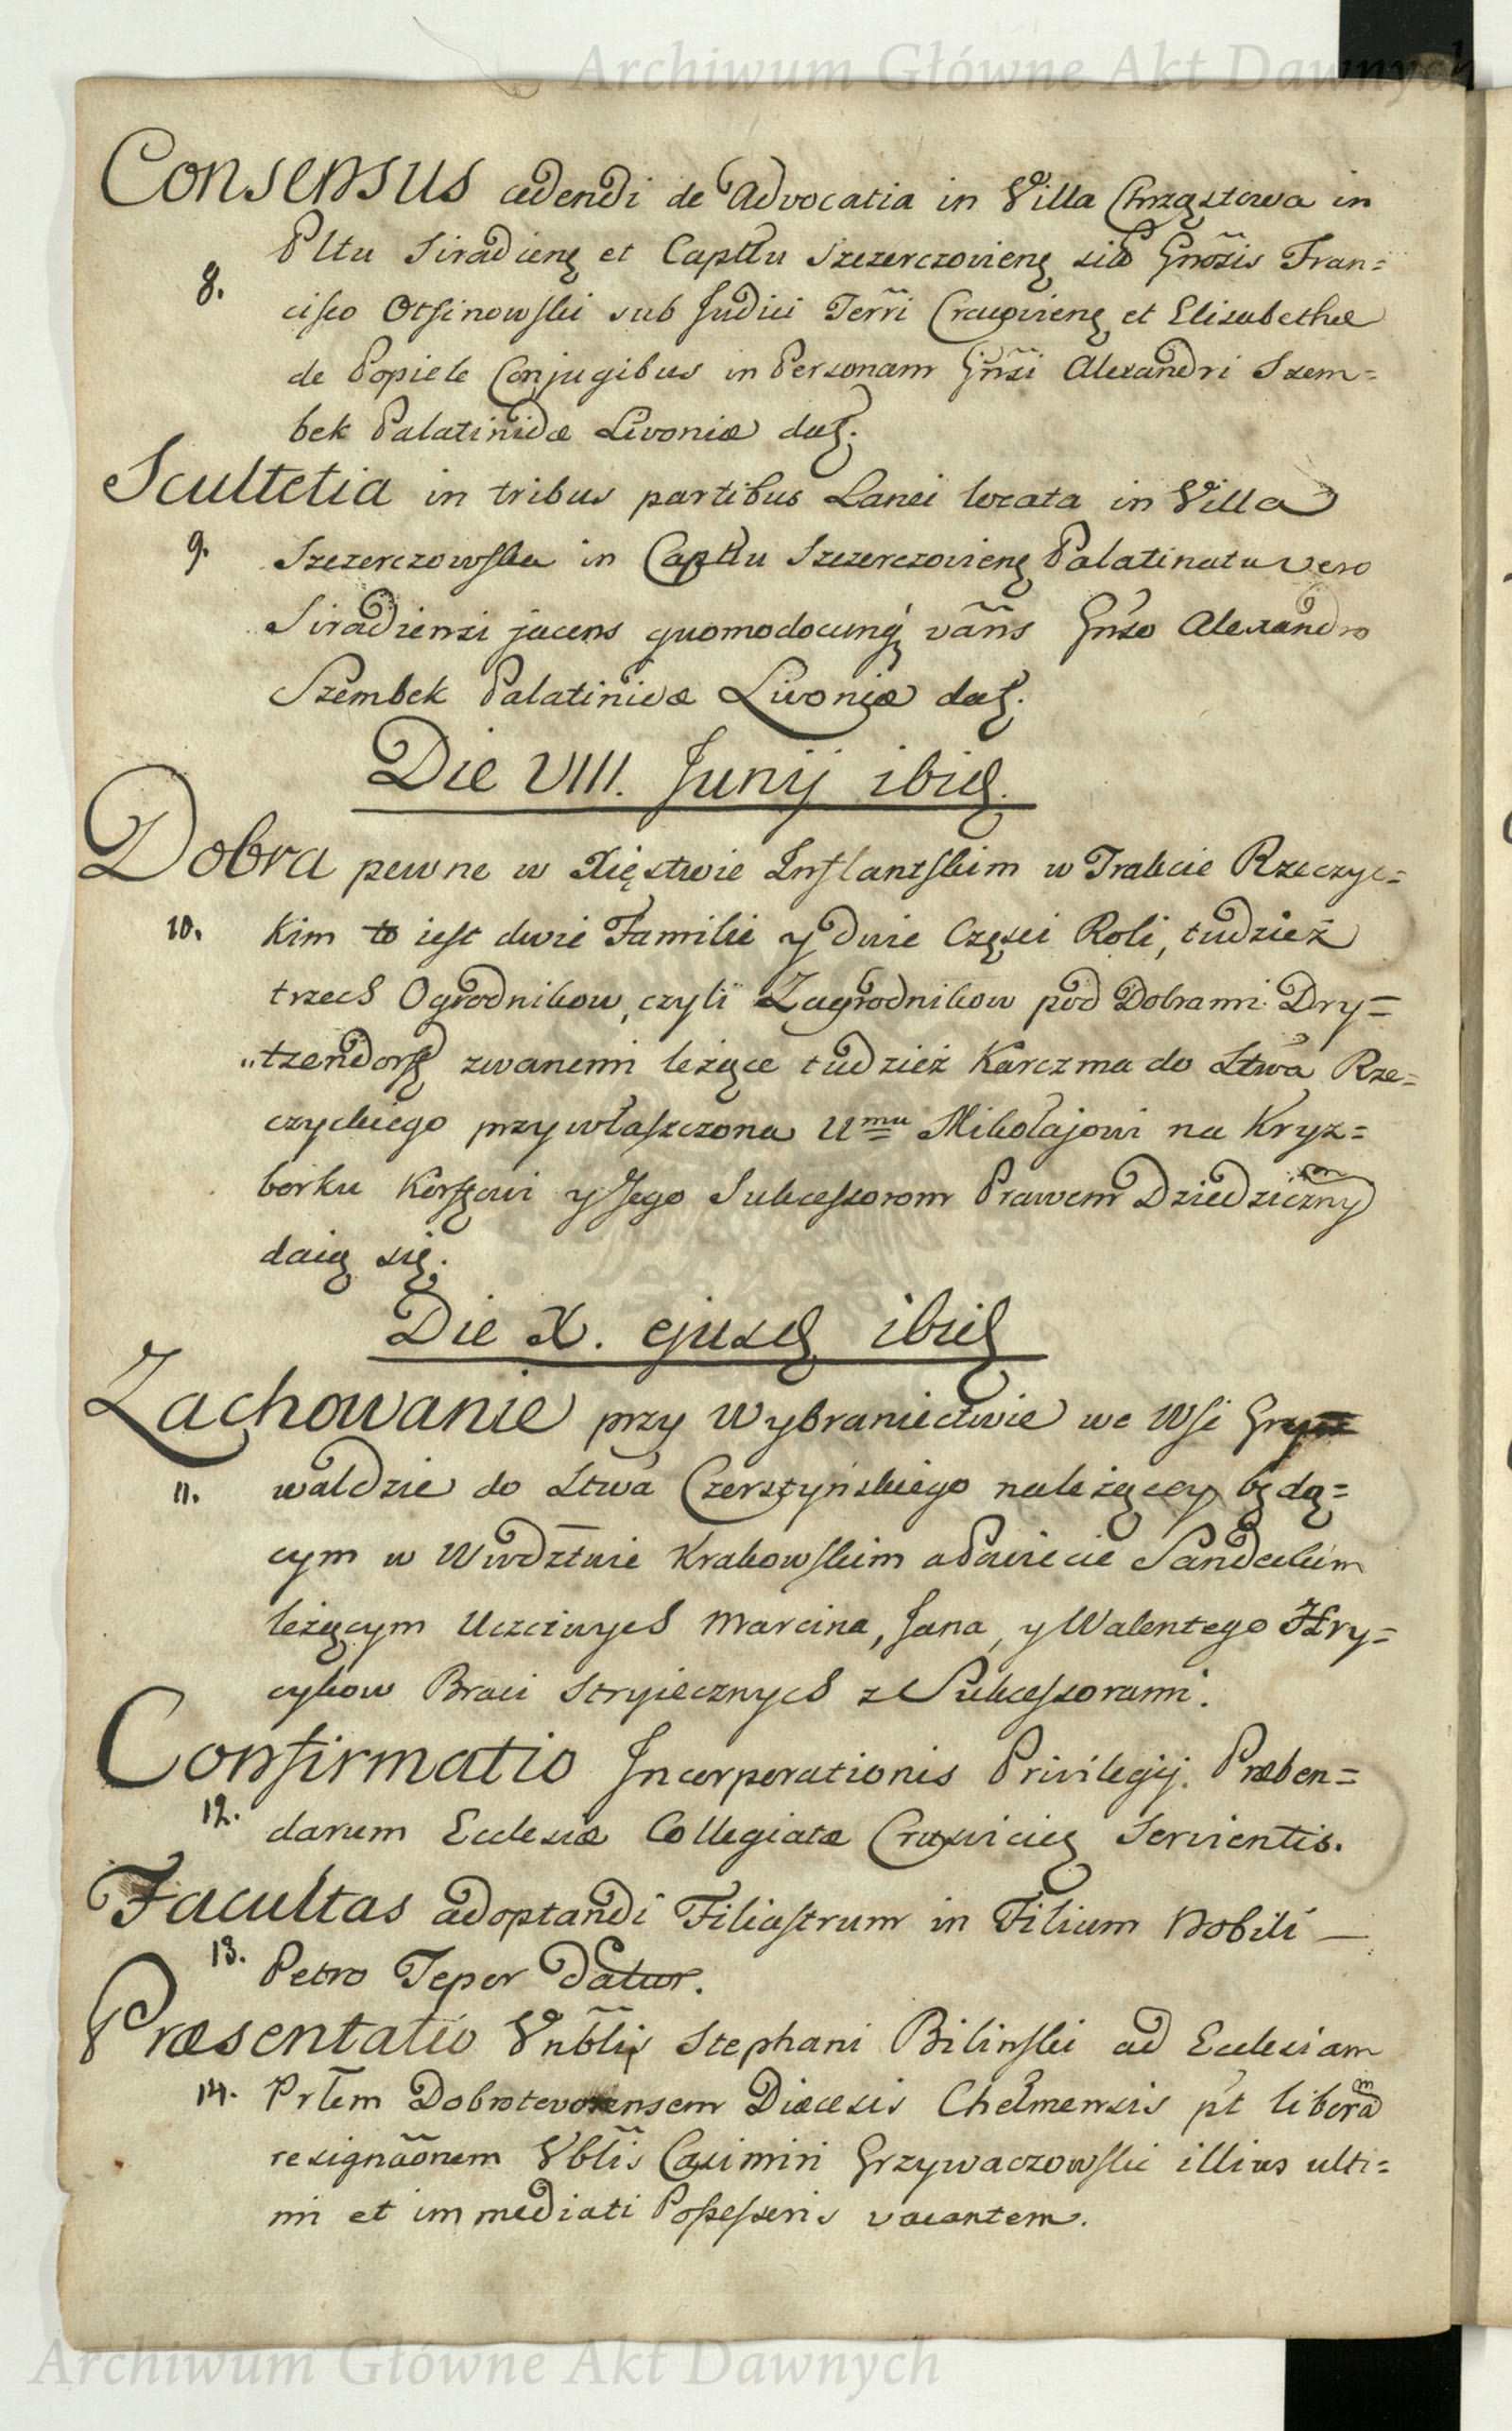 Archiwum Główne Akt Dawnych
Consensus cedendi de Advocatia in Villa Chrząstowa in
Pltu Siradieng et Capttu Szczerczovieng sito Gnosis Fran=
8.
cisco Otfinowski sub Judici Terri Cracovieng et Elisabethæ
de Popiele Conjugibus in Personam Gnsi Alexandri Szem=
bek Palatinidæ Livoniæ dat.
Scultetia in tribus partibus Lanei locata in Villa
9. Szczerczowska in Capttu Szczerczovieng Palatinatu vero
Siradiensi jacens quomodocunq vans Gnso Alexandro
Szembek Palatinidæ Livoniæ dat.
Die VIII. Junij ibid.
Dobra pewne w Xięstwie Inflantskim w Trakcie Rzeczyc=
10. kim to iest dwie Familie y dwie Części Roli, tudzież
trzech Ogrodnikow, czyli Zagrodnikow pod Dobrami Dry=
"tzendorff zwanemi leżące tudzież Karczma do Stwa Rze=
czyckiego przywłaszczona Umu Mikołajowi na Kryz=
borku Korffowi y Jego Sukcessorom Prawem Dziedziczny em
daią się.
Die X. ejusd ibid
Zachowanie przy Wybraniectwie we Wsi Gryn
11. waldzie do Stwa Czorsztyńskiego należącey będą=
cym w Wwdztwie Krakowskim a Powiecie Sandeckim
leżącym Uczciwych Marcina, Jana, y Walentego Hry=
cykow Braci Stryiecznych z Sukcessorami.
Confirmatio Incorporationis Privilegij Præben=
12. darum Ecclesiæ Collegiatæ Crusvicieg Servientis.
Facultas adoptandi Filiastrum in Filium Nobili —
13. Petro Teper Datur.
Præsentatio Vnblis Stephani Bilinski ad Ecclesiam
14. Prlem Dobrotvorensem Diæcesis Chełmensis pt libera m
resignaonem Vblis Casimiri Grzywaczowski illius ulti=
mi et immediati Possessoris vacantem.
Archiwum Główne Akt Dawnych